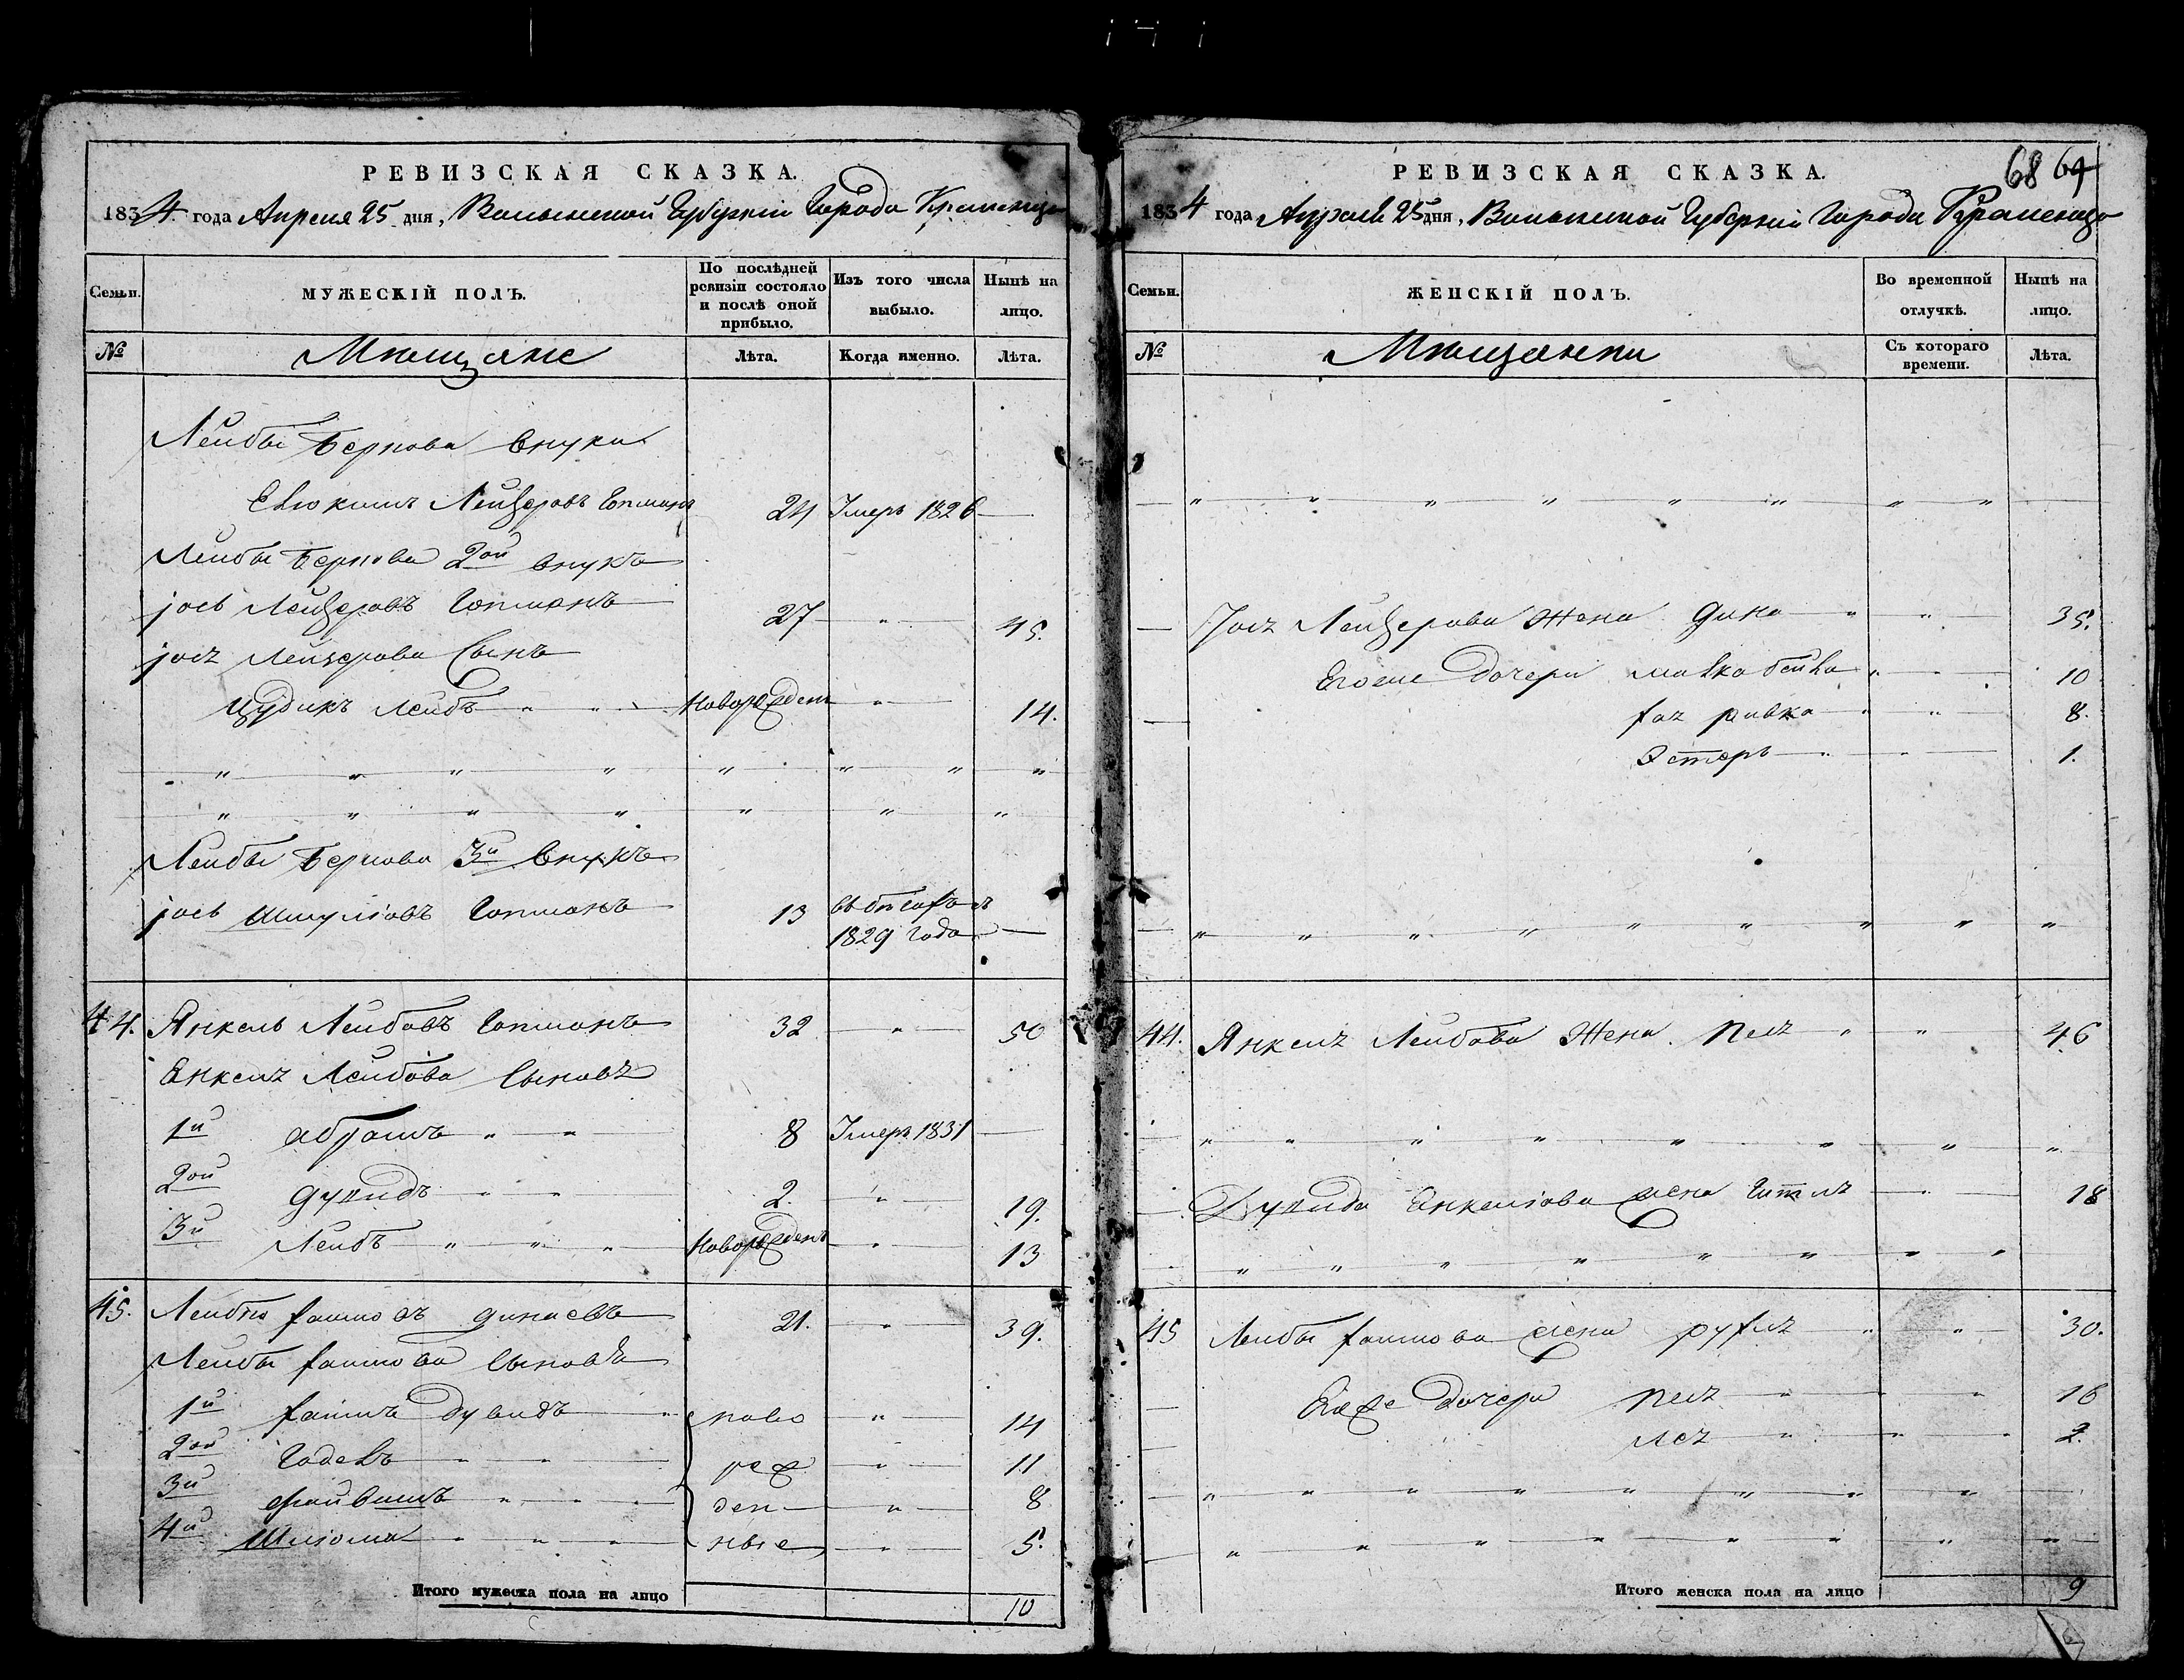 РЕВИЗСКАЯ СКАЗКА.
1834 года Апреля 25 дня, Волынской Губернии Города Кременца
Семьи. МУЖЕСКІЙ ПОЛЪ. По послѣдней ревизіи состояло и послѣ оной прибыло. Изъ того числа выбыло. Нынѣ на лицо.
№ Мещане Лѣта. Когда именно. Лѣта.
Лейбы Беркова внуки
Лейзеровъ Гопманъ 24 Умеръ 1826
Лейбы Беркова 2ой внукъ
іось Лейзеровъ Гопманъ 27 45.
іося Лейзерова Сынъ
Цудикъ Лейбъ Новорожденъ 14.
Лейбы Беркова 3й внукъ
іось Шмулiовъ Гопманъ 13 въ бѣгахъ съ
1829 года
44. Янкель Лейбовъ Гопманъ 32 50
Янкеля Лейбова Сыновя
1й абрамъ 8 Умеръ 1831
2ой дувидъ 2. 19.
3й Лейбъ Новорожденъ 13
45. Лейбы 21. 39.
Лейбы Сыновя
1й дувидъ ново 14
2ой рож 11
3й файвишъ ден 8
4й Шлiома ные 5.
Итого мужеска пола на лицо 10
68 69
РЕВИЗСКАЯ СКАЗКА.
1834 года Апреля 25 дня, Волынской Губерніи Города Кременца
Семьи. ЖЕНСКІЙ ПОЛЪ. Во временной отлучкѣ. Нынѣ на лицо.
№ Мещанки Съ котораго времени. Лѣта.
Іося Лейзерова Жена дина 35.
Егоже дочери 10
хая ривка 8.
Эстеръ 1.
44. Янкеля Лейбова Жена. песя 46
Дувида Янкелiова жена гитля 18
45 Лейбы жена рухля 30.
Егоже дочери песя 16
лея 2.
Итого женска пола на лицо 9